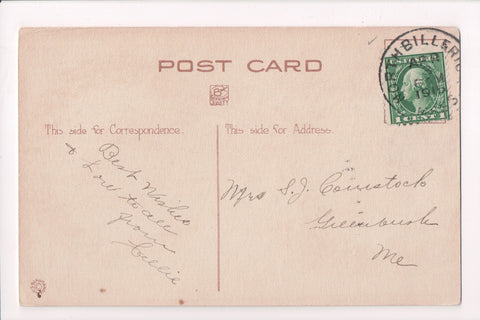 POST CARD
NORTH BILLERIC
This side for Correspondence.
This side for Address.
Best Wishes
& Love to all
from
Lillie
Mrs S.J. Comstock
Greenbush
Me